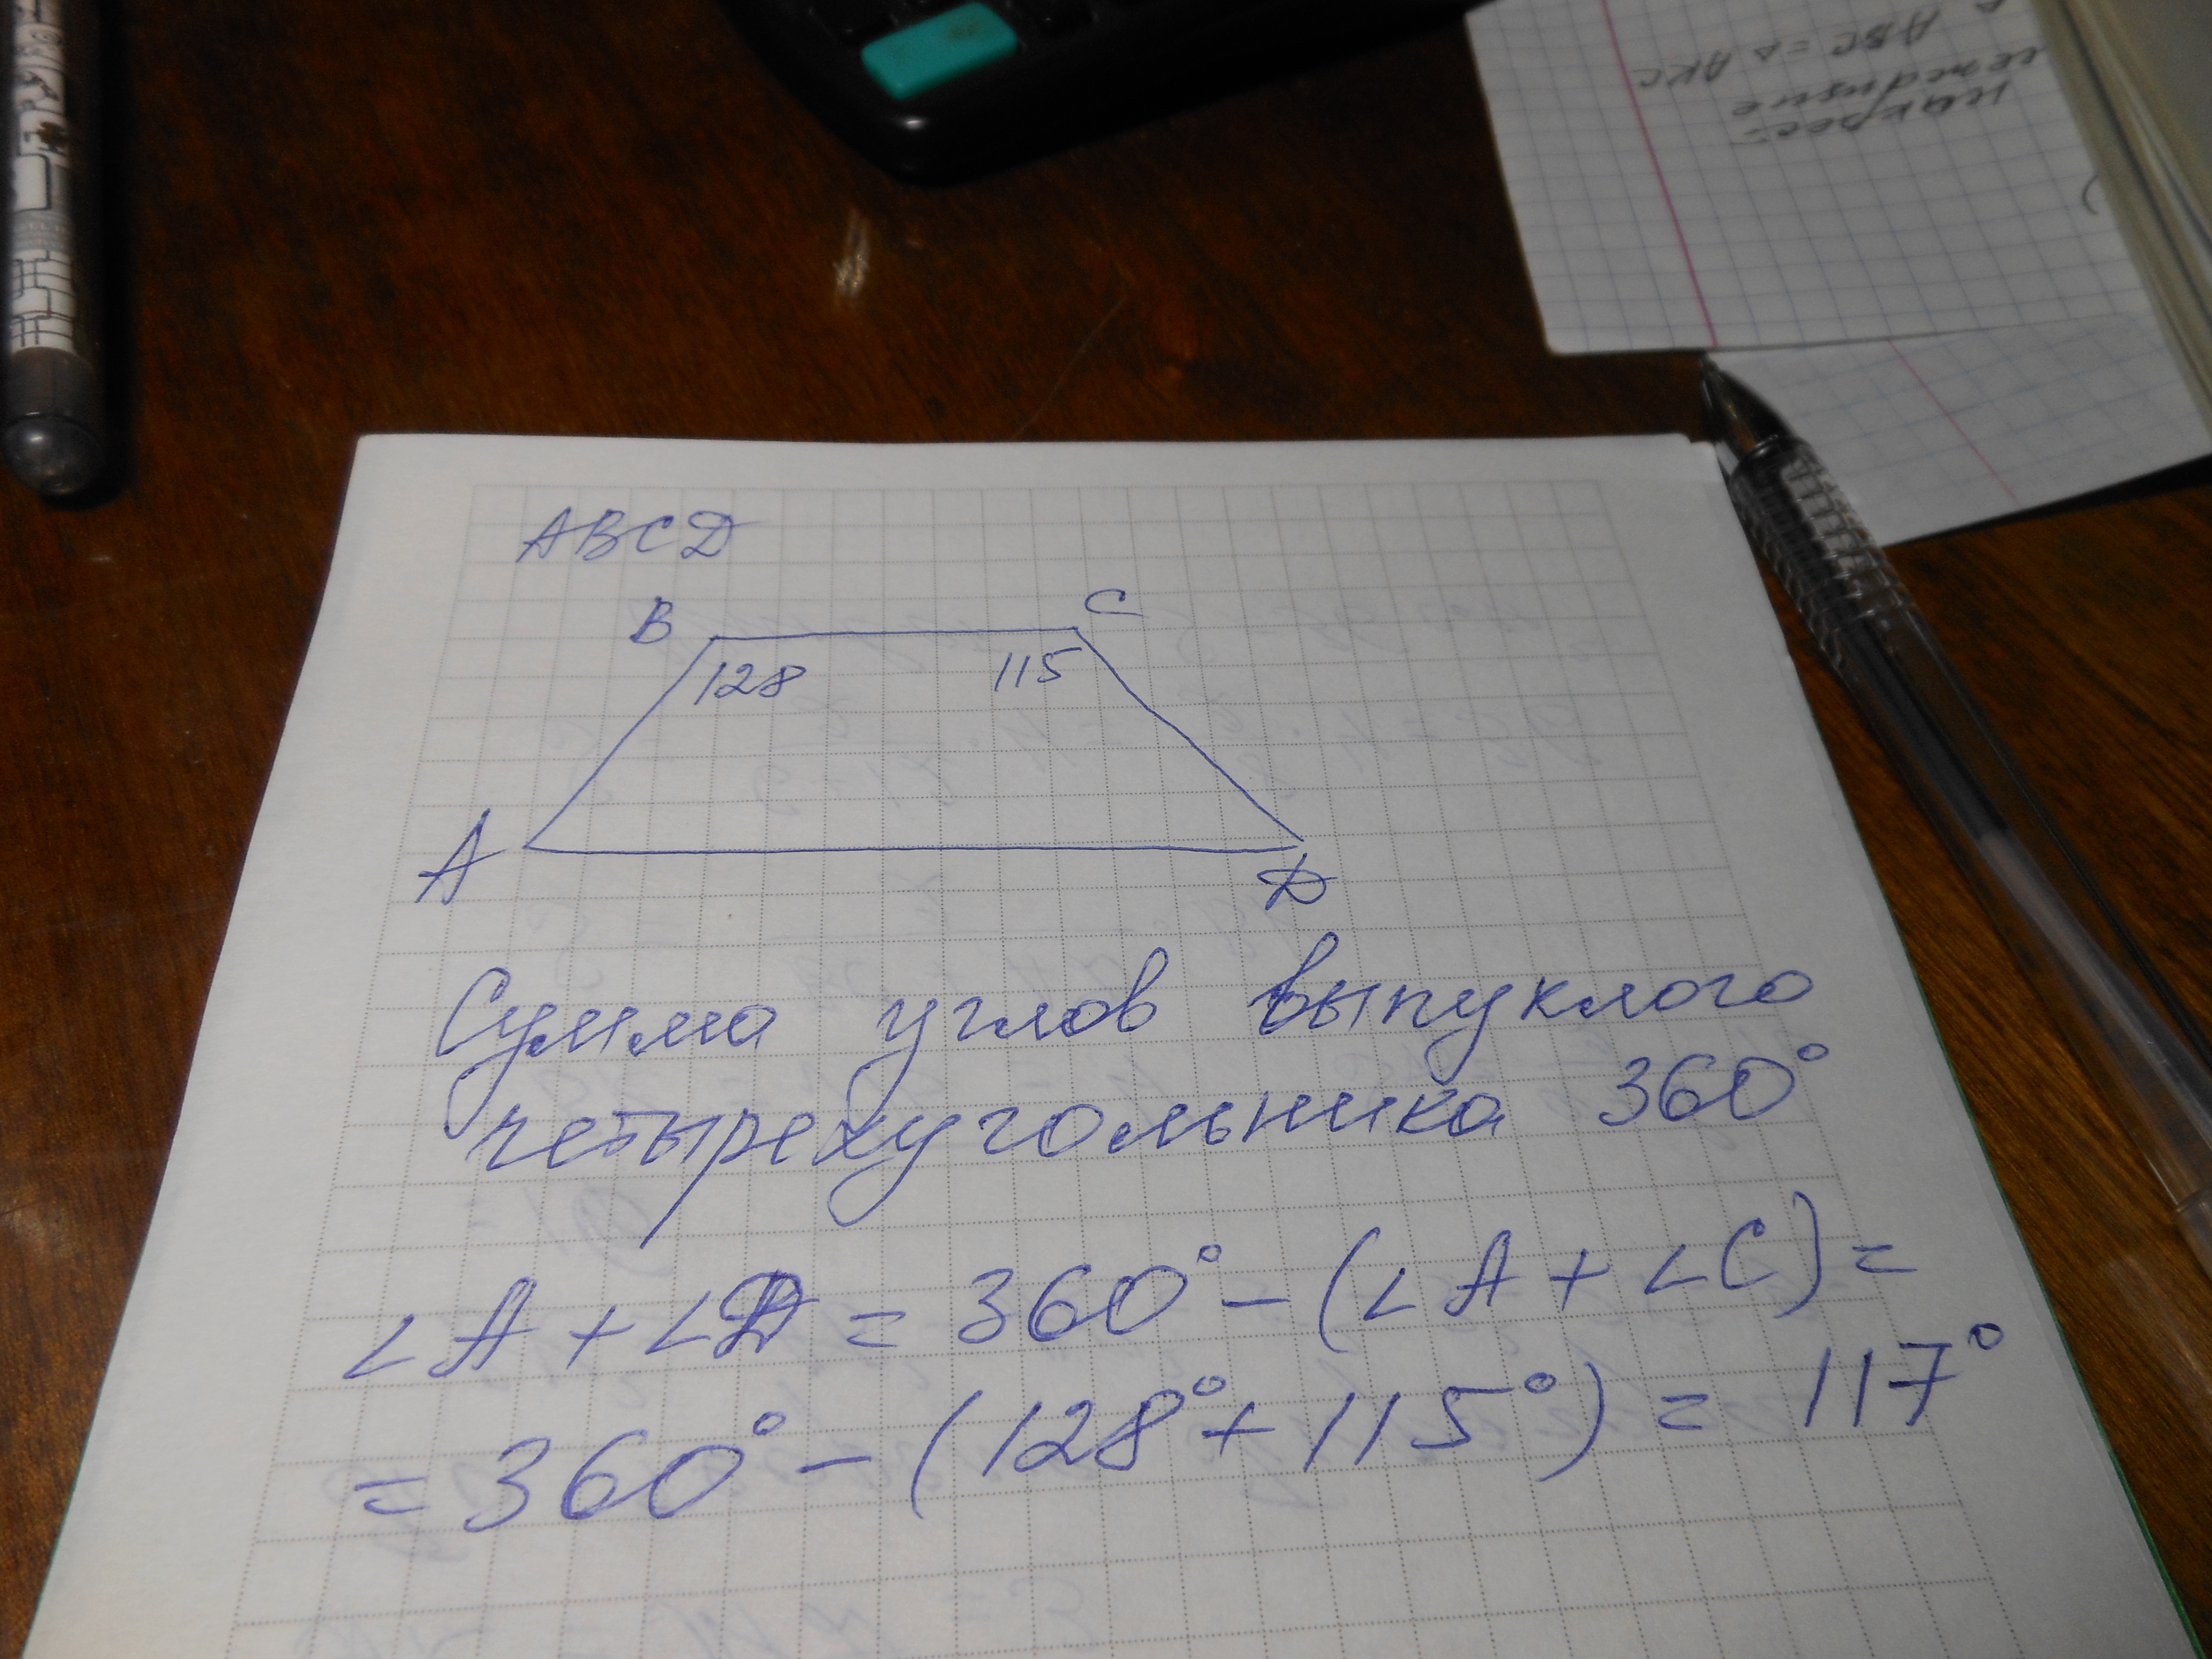 ABCD
B C
128 115
A D
Сумма углов выпуклого
четырехугольника 360°
∠A + ∠D = 360° - (∠A + ∠C) =
= 360° - (128° + 115°) = 117°
ABC = △ AKC